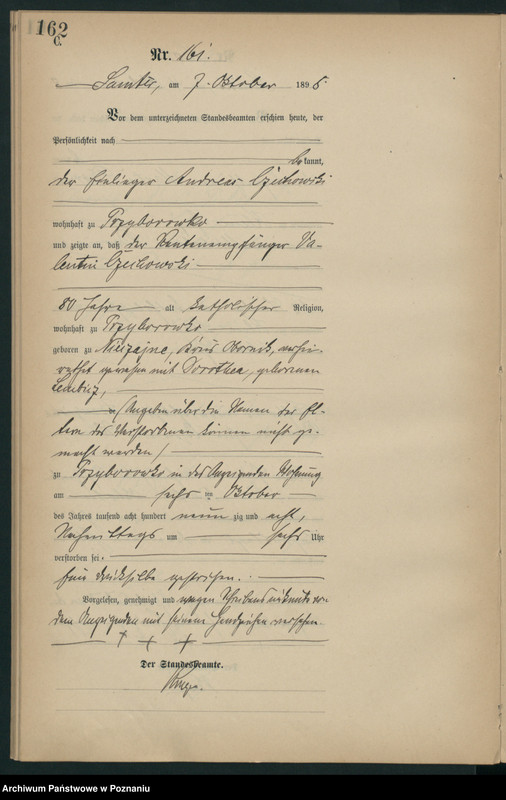 162
C.
Nr. 161.
Samter, am 7. Oktober 1898.
Vor dem unterzeichneten Standesbeamten erschien heute, der
Persönlichkeit nach
bekannt,
der Einlieger Andreas Czechowski
wohnhaft zu Przyborowko
und zeigte an, daß der Rentenempfänger Va-
lentin Czechowski
80 Jahre alt katholischer Religion,
wohnhaft zu Przyborowko
geboren zu Kreis Obornik, verhei-
rathet gewesen mit Dorothea, geborenen
(Angaben über die Namen der El-
tern des Verstorbenen können nicht ge-
macht werden)
zu Przyborowko in des Anzeigenden Wohnung
am sechsten Oktober
des Jahres tausend acht hundert neunzig und acht,
Nachmittags um sechs Uhr
verstorben sei.
Eine Druckssilbe gestrichen.
Vorgelesen, genehmigt und wegen Schreibensunkunde von
dem Anzeigenden mit seinem Handzeichen versehen.
+ + +
Der Standesbeamte.
Archiwum Państwowe w Poznaniu